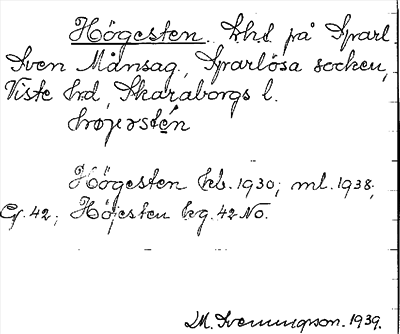 Högesten. Lht på Sparl.
Sven Månsag., Sparlösa socken,
Viste hrd, Skaraborgs l.
Högesten kb. 1930; ml. 1938,
Gj. 42; Höjesten kg. 42 No.
M. Svenungson. 1939.